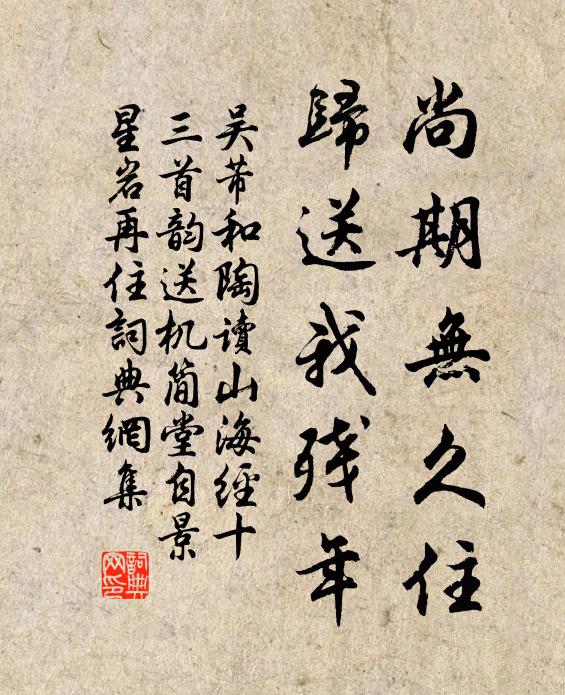 尚期無久住
歸送我残年
吴芾和陶讀山海經十
三首韵送机简堂自景
星岩再住詞典網集
詞典
网印